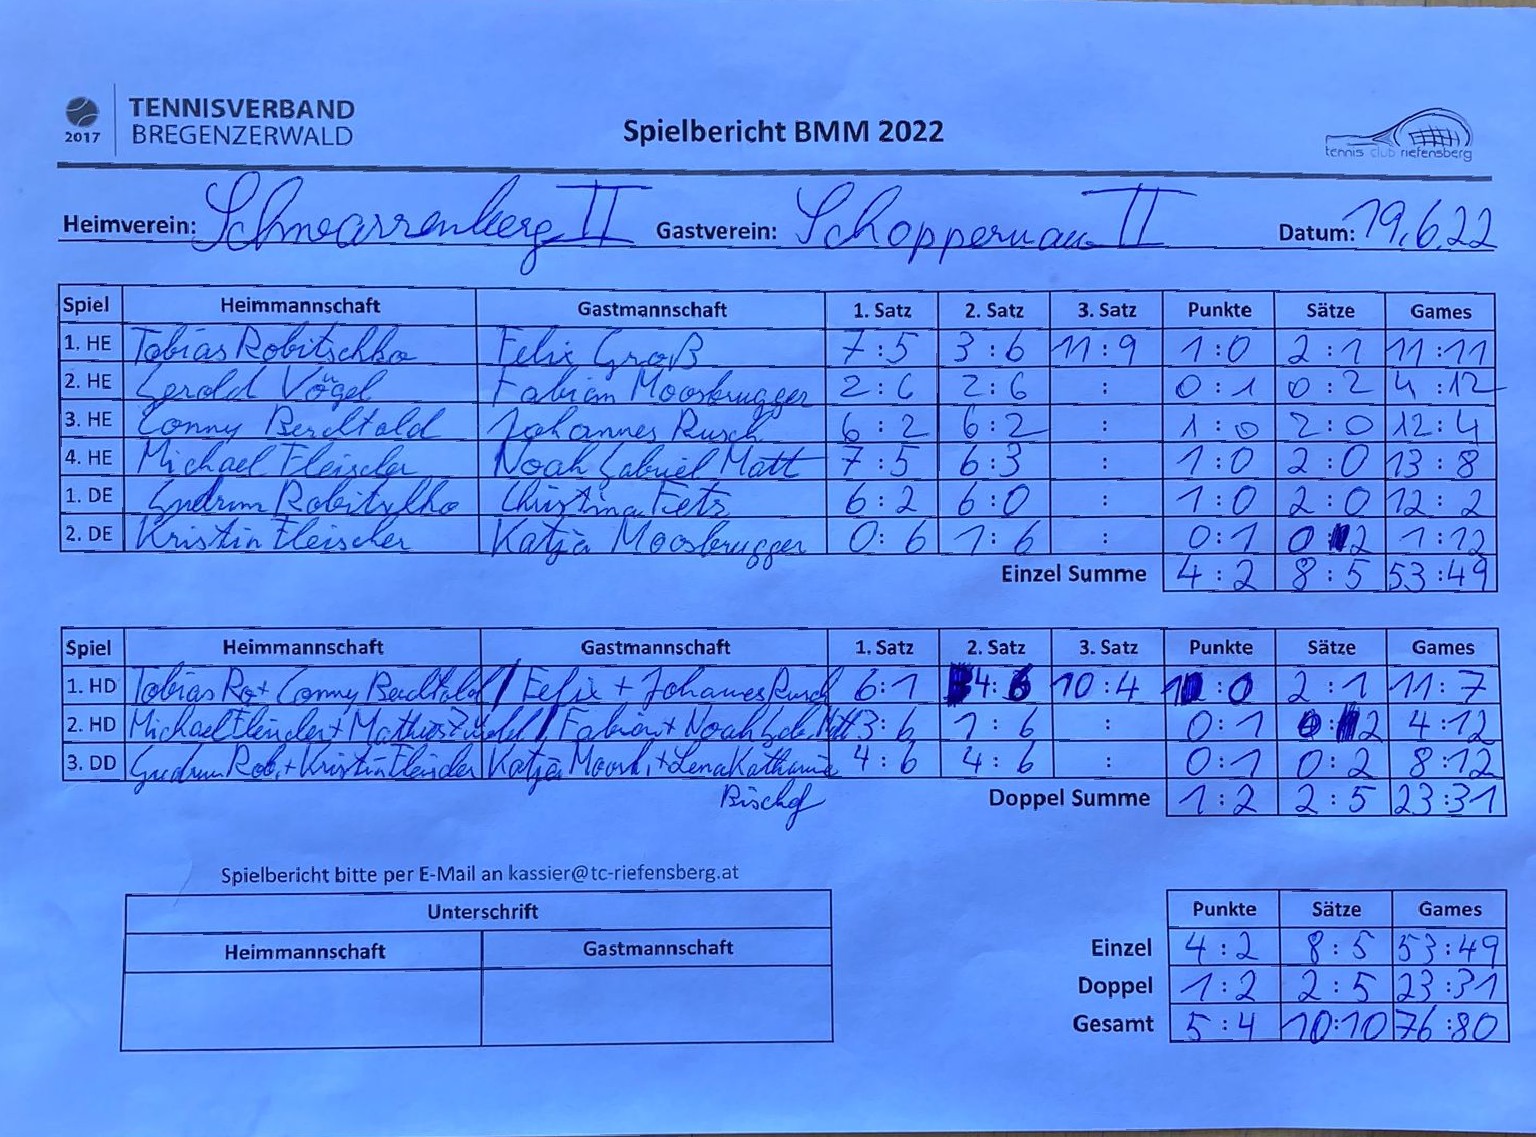 TENNISVERBAND
BREGENZERWALD
2017
Spielbericht BMM 2022
tennis club riefensberg
Heimverein: Schwarzenberg II Gastverein: Schoppernau II Datum: 19.6.22
Spiel Heimmannschaft Gastmannschaft 1. Satz 2. Satz 3. Satz Punkte Sätze Games
1. HE Tobias Robitschko Felix Groß 7:5 3:6 11:9 1:0 2:1 11:11
2. HE Gerold Vögel Fabian Moosbrugger 2:6 2:6 : 0:1 0:2 4:12
3. HE Conny Berchtold Johannes Rusch 6:2 6:2 : 1:0 2:0 12:4
4. HE Michael Fleischer Noah Gabriel Matt 7:5 6:3 : 1:0 2:0 13:8
1. DE Gudrun Robitschko Christina Fetz 6:2 6:0 : 1:0 2:0 12:2
2. DE Kristin Fleischer Katja Moosbrugger 0:6 1:6 : 0:1 0:2 1:12
Einzel Summe 4:2 8:5 53:49
Spiel Heimmannschaft Gastmannschaft 1. Satz 2. Satz 3. Satz Punkte Sätze Games
1. HD Tobias Ro + Conny Berchtold / Felix + Johannes Rusch 6:1 4:6 10:4 1:0 2:1 11:7
2. HD Michael Fleischer + / Fabian + Noah Gab. Matt 3:6 1:6 : 0:1 0:2 4:12
3. DD Gudrun Rob. + Kristin Fleischer Katja Moosb. + Lena Katharina 4:6 4:6 : 0:1 0:2 8:12
Bischof Doppel Summe 1:2 2:5 23:31
Spielbericht bitte per E-Mail an kassier@tc-riefensberg.at
Unterschrift
Heimmannschaft Gastmannschaft
Punkte Sätze Games
Einzel 4:2 8:5 53:49
Doppel 1:2 2:5 23:31
Gesamt 5:4 10:10 76:80